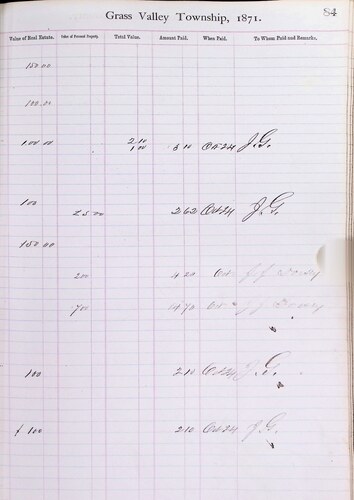 Grass Valley Township, 1871.
84
Value of Real Estate. Value of Personal Property. Total Value. Amount Paid. When Paid. To Whom Paid and Remarks.
150 00
100 00
2 10
100 00 1 00 3 10 Oct 24 J. G.
100
25 00 2 62 Oct 24 J. G.
150 00
200 4 20 Oct J. J.
700 14 70 Oct J. J.
100 2 10 Oct 24 J. G.
100 2 10 Oct 24 J. G.